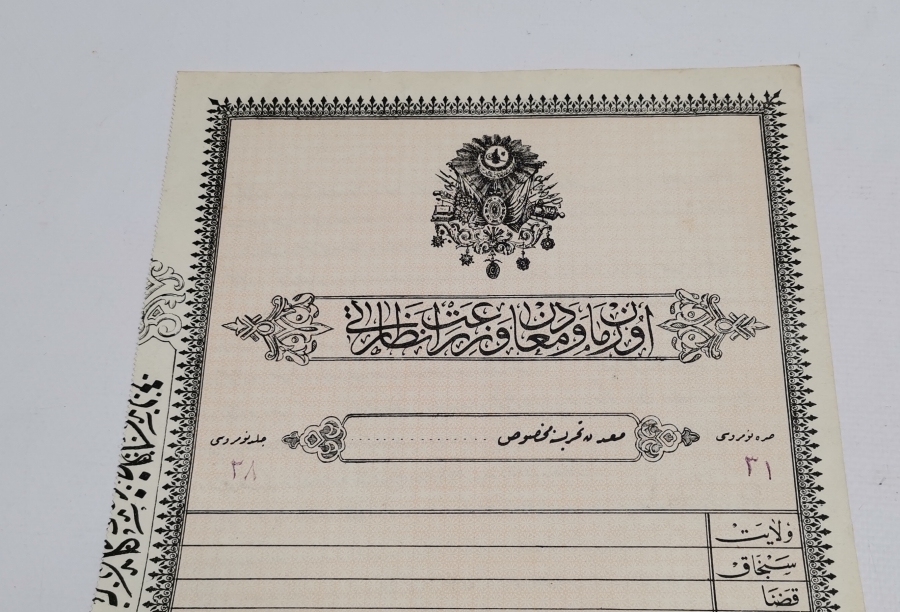 اورمان و معادن و زراعت نظارتی
معدن تحریسنه مخصوص
صره نومروسی
۳۱
جلد نومروسی
۳۸
ولایت
سنجاق
قضا